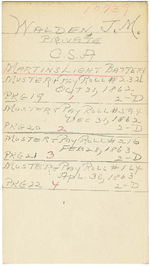 WALDEN, J.M.
PRIVATE
C.S.A
MARTIN'S LIGHT BATTERY
MUSTER & PAY ROLL #232
OCT 31, 1862
PKG 19 1 2-D
MUSTER & PAY ROLL
DEC 31, 1862
PKG 20 2 2-D
MUSTER & PAY ROLL #216
FEB 28, 1863
PKG 21 3 2-D
MUSTER & PAY ROLL #164
APL. 30, 1863
PKG 22 4 2-D